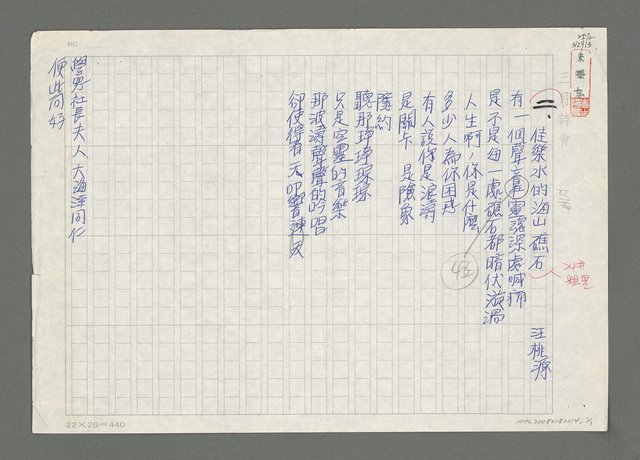 三月詩會
二、佳樂水的海山礁石
汪桃源
有一個聲音靈魂深處喊痛
是不是每一處礁石都暗伏漩渦
人生啊，你是什麼
多少人為你困惑
有人說你是浪濤
是關卡 是險象
隱約
聽那琤琤琮琮
只是空靈的音樂
那波濤聲聲的吟唱
卻使得有天叩響
譽兒社長夫人、大海洋同仁
便此問好
24#
粗黑
NO
22×20=440